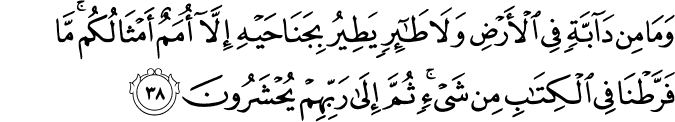 وَمَا مِن دَآبَّةٍ فِي ٱلْأَرْضِ وَلَا طَـٰٓئِرٍ يَطِيرُ بِجَنَاحَيْهِ إِلَّآ أُمَمٌ أَمْثَالُكُم ۚ مَّا
فَرَّطْنَا فِي ٱلْكِتَـٰبِ مِن شَىْءٍ ۚ ثُمَّ إِلَىٰ رَبِّهِمْ يُحْشَرُونَ ٣٨